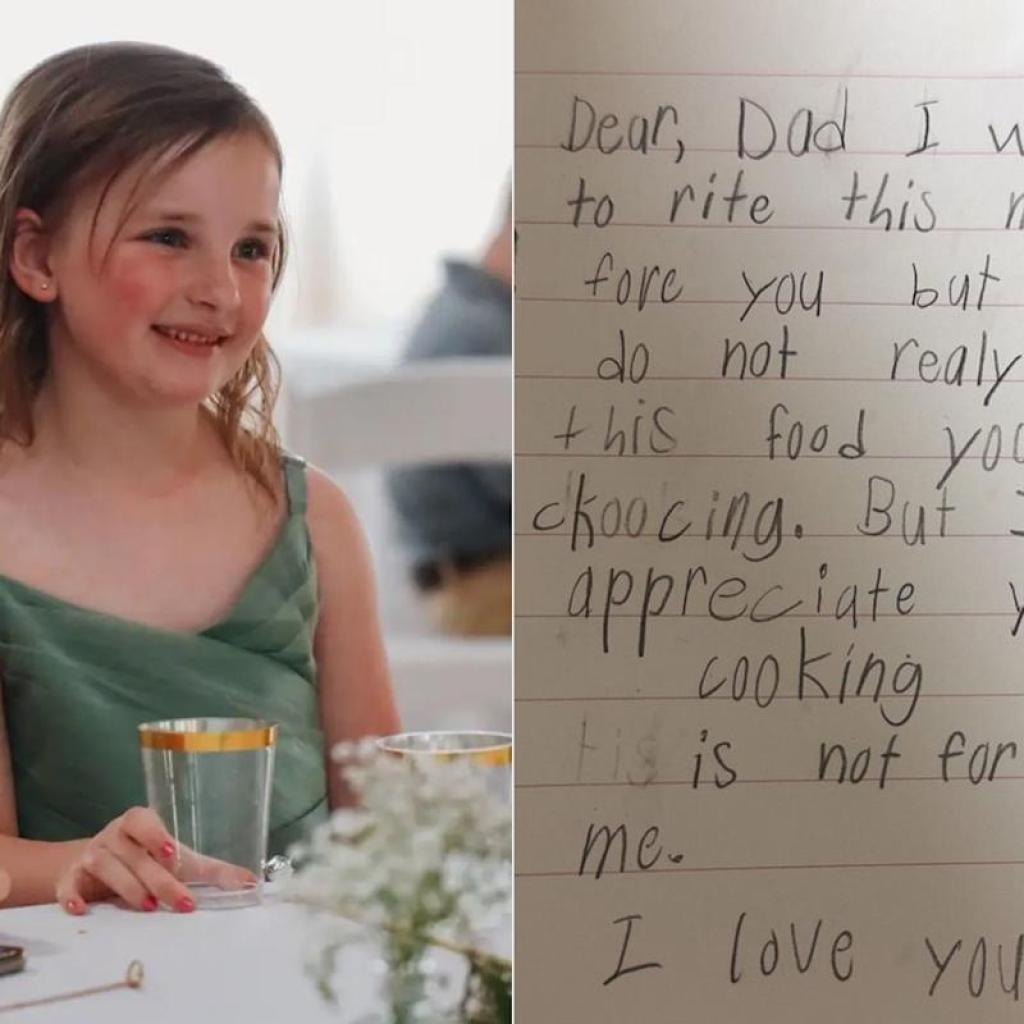 Dear, Dad I w
to rite this n
fore you but
do not realy
this food you
ckoocing. But I
appreciate y
cooking
tis is not for
me.
I love you